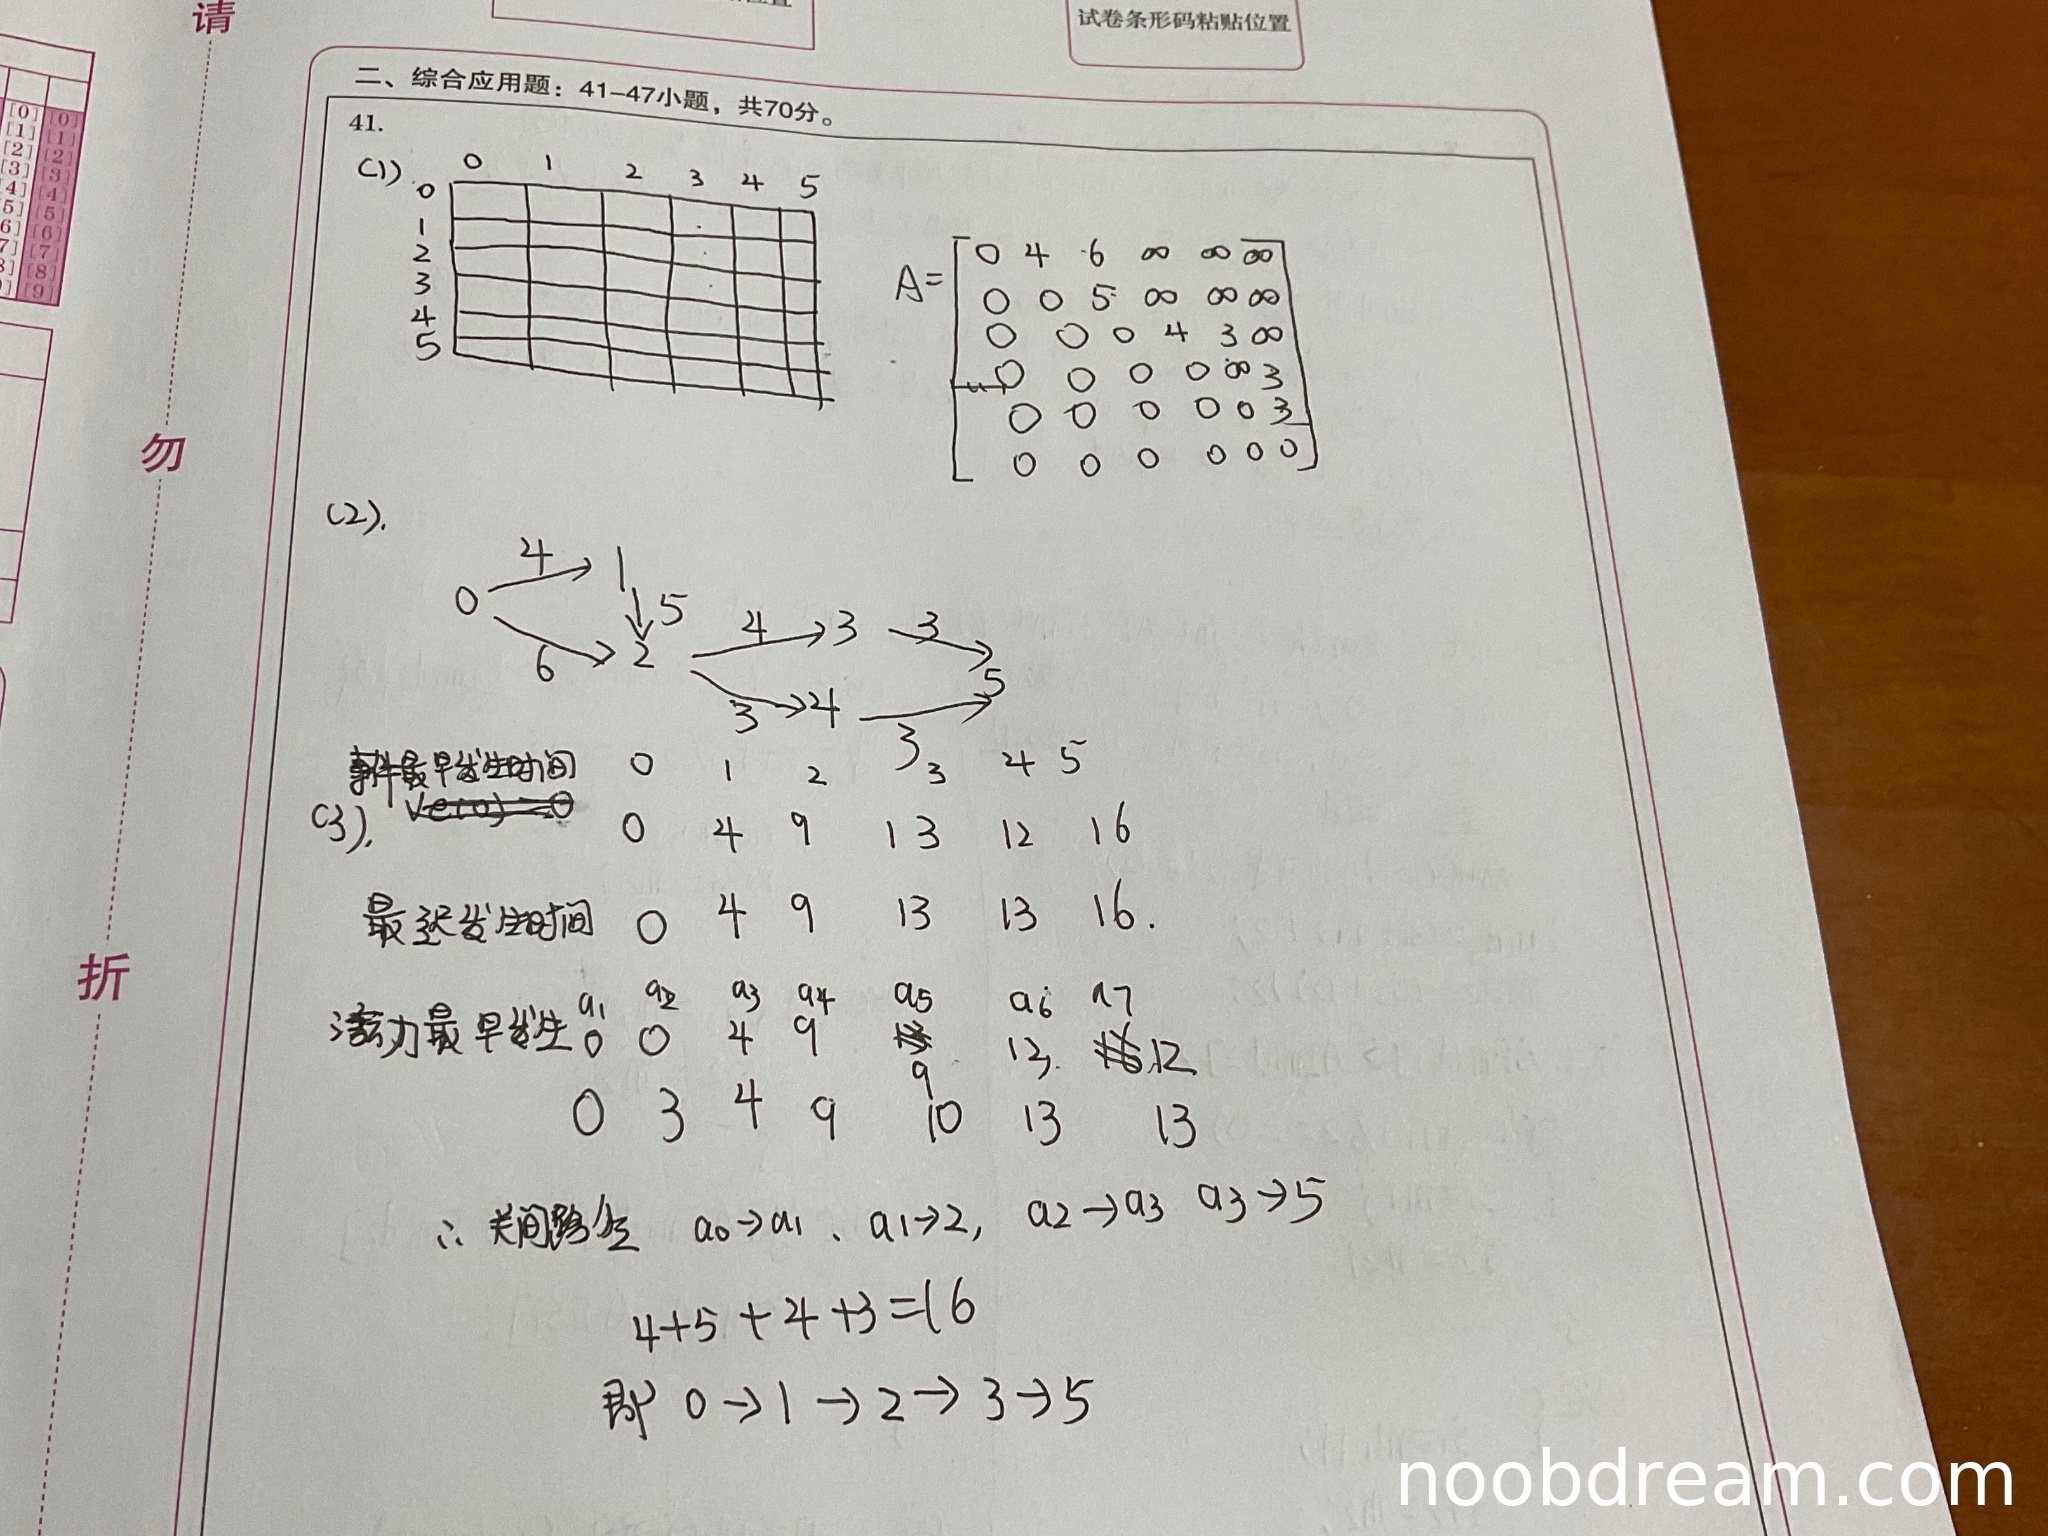 请
试卷条形码粘贴位置
二、综合应用题：41-47小题，共70分。
41.
(1)
0 1 2 3 4 5
0
1
2
3
4
5
A=
0 4 6 ∞ ∞ ∞
0 0 5 ∞ ∞ ∞
0 0 0 4 3 ∞
0 0 0 0 ∞ 3
0 0 0 0 0 3
0 0 0 0 0 0
勿
(2).
0 4 1 5
6 2 4 3 3
3 4 3 5
事件最早发生时间 0 1 2 3 4 5
(3). 0 4 9 13 12 16
最迟发生时间 0 4 9 13 13 16.
折
a1 a2 a3 a4 a5 a6 a7
活动最早发生 0 0 4 9 9 13. 12
0 3 4 9 10 13 13
∴ 关间路径 a0→a1、a1→2, a2→a3 a3→5
4+5+4+3=16
即 0→1→2→3→5
[0] [0]
[1] [1]
[2] [2]
[3] [3]
[4] [4]
[5] [5]
[6]
[7]
[8]
[9]
noobdream.com